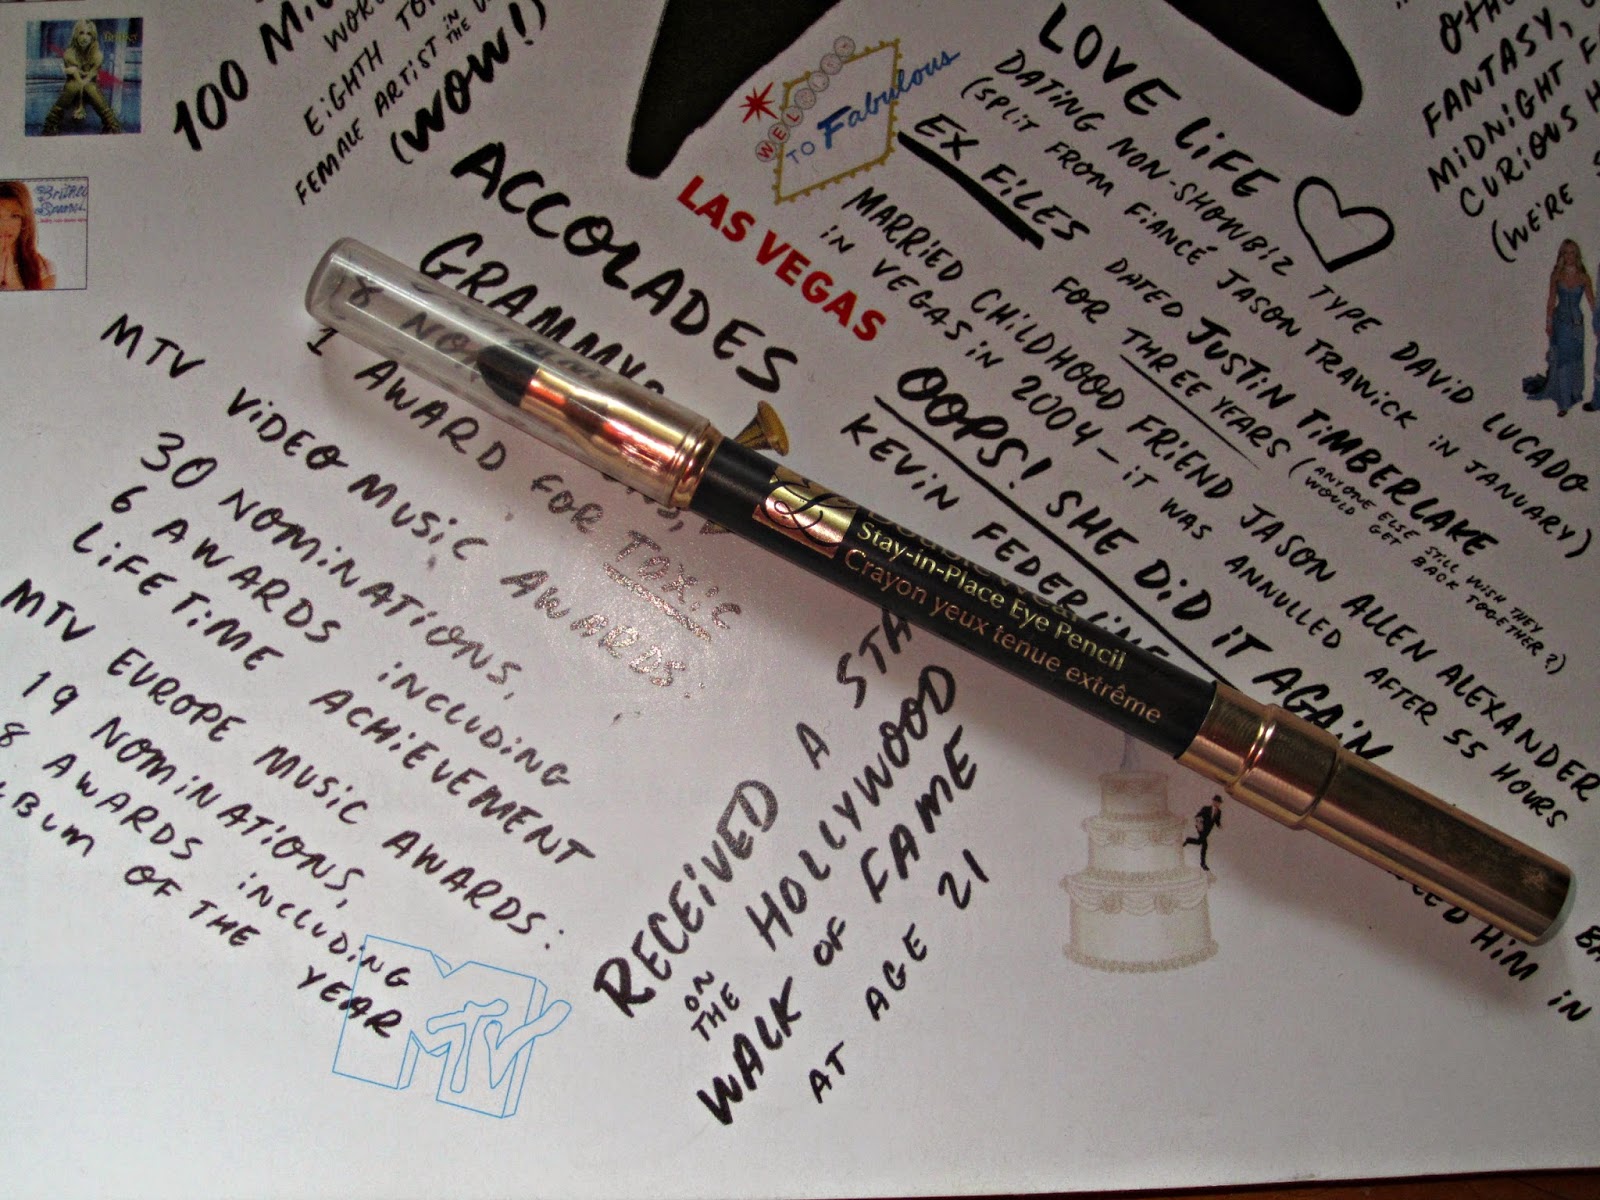 100
WORL
EIGHTH TO
FEMALE ARTIST IN THE
(WOW!)
Britney
Britney
Spears
ACCOLADES
GRAMMYS
8
NOM
1 AWARD FOR TOXIC
MTV VIDEO MUSIC AWARDS:
30 NOMINATIONS,
6 AWARDS INCLUDING
LIFETIME ACHIEVEMENT
MTV EUROPE MUSIC AWARDS:
19 NOMINATIONS,
8 AWARDS INCLUDING
ALBUM OF THE YEAR
MTV
RECEIVED A STA
ON THE HOLLYWOOD
WALK OF FAME
AT AGE 21
WELCOME
TO Fabulous
LAS VEGAS
LOVE LIFE
DATING NON-SHOWBIZ TYPE DAVID LUCADO
(SPLIT FROM FIANCÉ JASON TRAWICK IN JANUARY)
EX FILES
DATED JUSTIN TIMBERLAKE
FOR THREE YEARS (ANYONE ELSE STILL WISH THEY
WOULD GET BACK TOGETHER?)
MARRIED CHILDHOOD FRIEND JASON ALLEN ALEXANDER
IN VEGAS IN 2004 – IT WAS ANNULLED AFTER 55 HOURS
OOPS! SHE DID IT AGAIN
KEVIN FEDERLINE
HIM IN
FANTASY,
MIDNIGHT F
CURIOUS H
(WE'RE
Stay-in-Place Eye Pencil
Crayon yeux tenue extrême